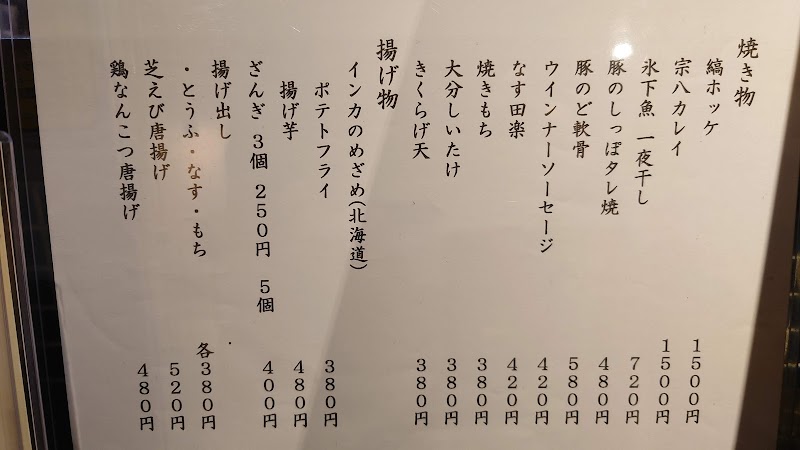 焼き物
縞ホッケ 1500円
宗八カレイ 1500円
氷下魚 一夜干し 720円
豚のしっぽタレ焼 480円
豚のど軟骨 580円
ウインナーソーセージ 420円
なす田楽 420円
焼きもち 380円
大分しいたけ 380円
きくらげ天 380円
揚げ物
インカのめざめ(北海道)
ポテトフライ 380円
揚げ芋 480円
ざんぎ 3個 250円 5個 400円
揚げ出し
・とうふ・なす・もち 各380円
芝えび唐揚げ 520円
鶏なんこつ唐揚げ 480円